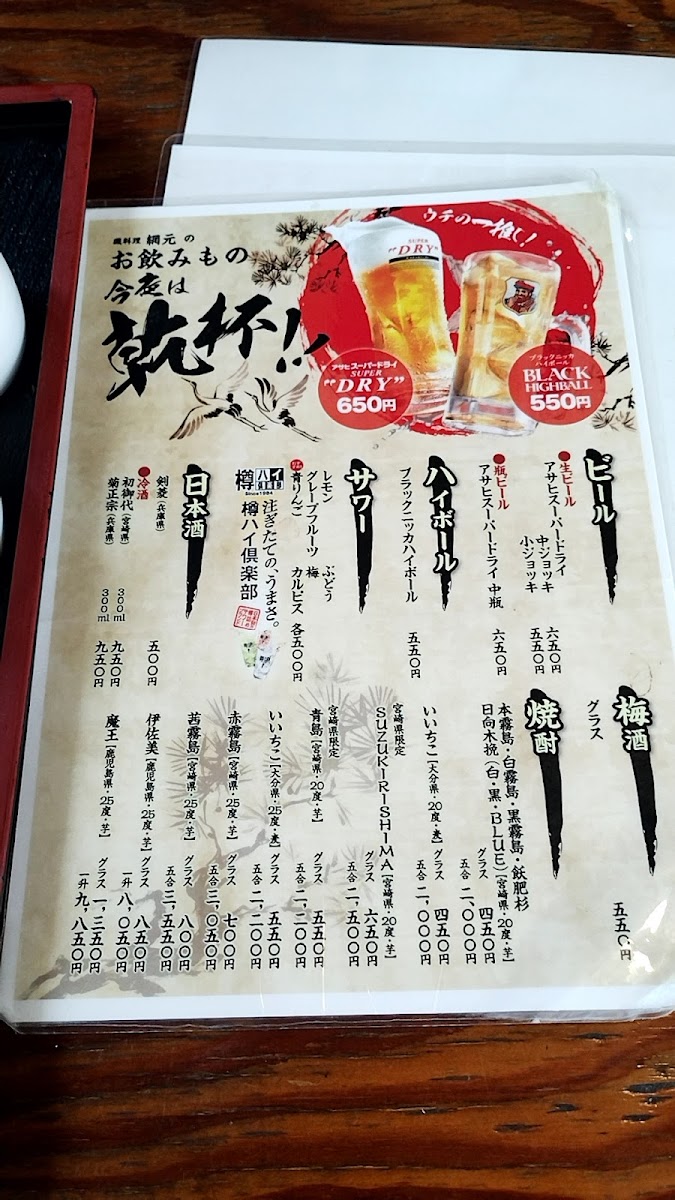 網元 の
お飲みもの
今夜は
乾杯!!
ウチの一推し!
SUPER
"DRY"
アサヒスーパードライ
SUPER
"DRY"
650円
ブラックニッカ
ハイボール
BLACK
HIGHBALL
550円
ビール
●生ビール
アサヒスーパードライ
中ジョッキ 六五〇円
小ジョッキ 五五〇円
●瓶ビール
アサヒスーパードライ 中瓶 六五〇円
ハイボール
ブラックニッカハイボール 五五〇円
サワー
レモン ぶどう
グレープフルーツ 梅
青りんご カルピス 各五〇〇円
樽ハイ倶楽部
Since1984
注ぎたての、うまさ。
樽ハイ倶楽部
日本酒
剣菱(兵庫県) 五〇〇円
●冷酒
初御代(宮崎県) 300ml 九五〇円
菊正宗(兵庫県) 300ml 九五〇円
梅酒
グラス 五五〇円
焼酎
本霧島・白霧島・黒霧島・飫肥杉
日向木挽(白・黒・BLUE)[宮崎県・20度・芋]
グラス 四五〇円
五合 二、〇〇〇円
いいちこ[大分県・20度・麦]
グラス 四五〇円
五合 二、〇〇〇円
宮崎県限定
SUZUKIRISHIMA[宮崎県・20度・芋]
グラス 六五〇円
五合 二、五〇〇円
宮崎県限定
青島[宮崎県・20度・芋]
グラス 五五〇円
五合 二、二〇〇円
いいちこ[大分県・25度・麦]
グラス 五五〇円
五合 二、二〇〇円
赤霧島[宮崎県・25度・芋]
グラス 七〇〇円
五合 三、〇五〇円
茜霧島[宮崎県・25度・芋]
グラス 八〇〇円
五合 三、五五〇円
伊佐美[鹿児島県・25度・芋]
グラス 八五〇円
一升 八、〇五〇円
魔王[鹿児島県・25度・芋]
グラス 一、三五〇円
一升 九、八五〇円